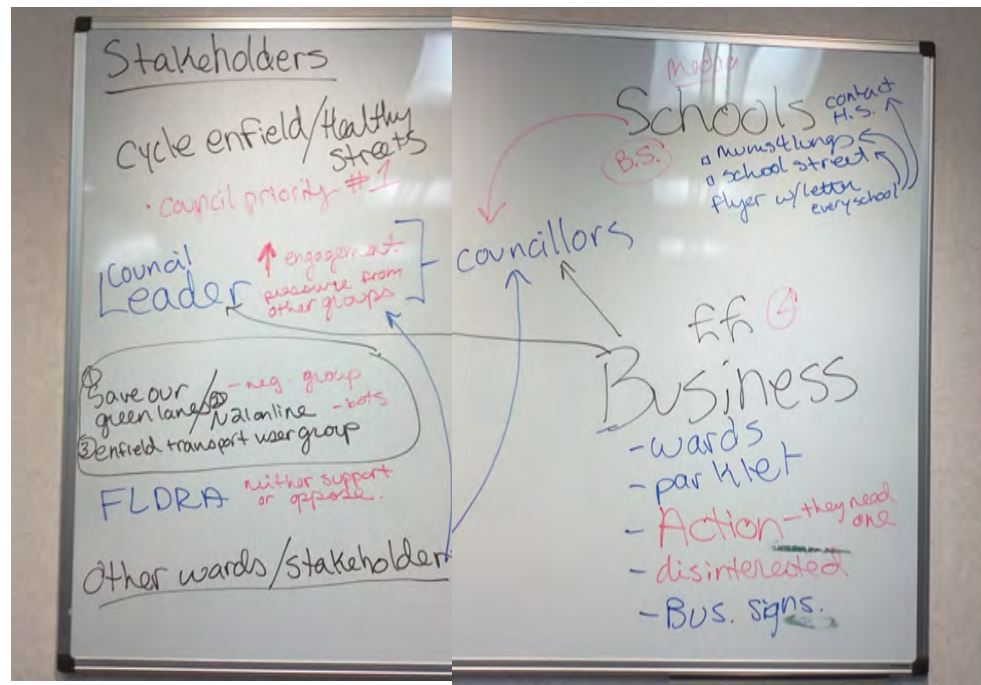 Stakeholders
Cycle enfield/Healthy
streets
• council priority #1
Council
Leader
↑ engagement
pressure from
other groups
councillors
① Save our
green lanes/② N21online
- neg. group
- bots
③ enfield transport user group
FLDRA neither support
or oppose.
Other wards/stakeholder
Media
Schools
contact
H.S.
B.S.
mums4lungs
school street
flyer w/letter
every school
Business
- wards
- parklet
- Action - they need
one
- disinterested
- Bus. signs.